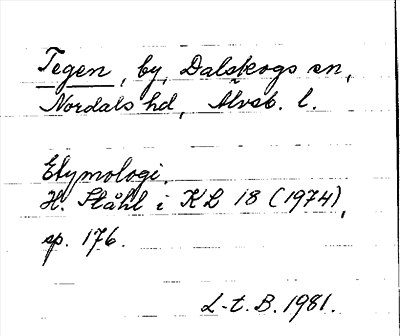 Tegen, by, Dalskogs sn,
Nordals hd, Älvsb. l.
Etymologi.
H. Ståhl i KL 18 (1974),
sp. 176.
L-t. B. 1981.